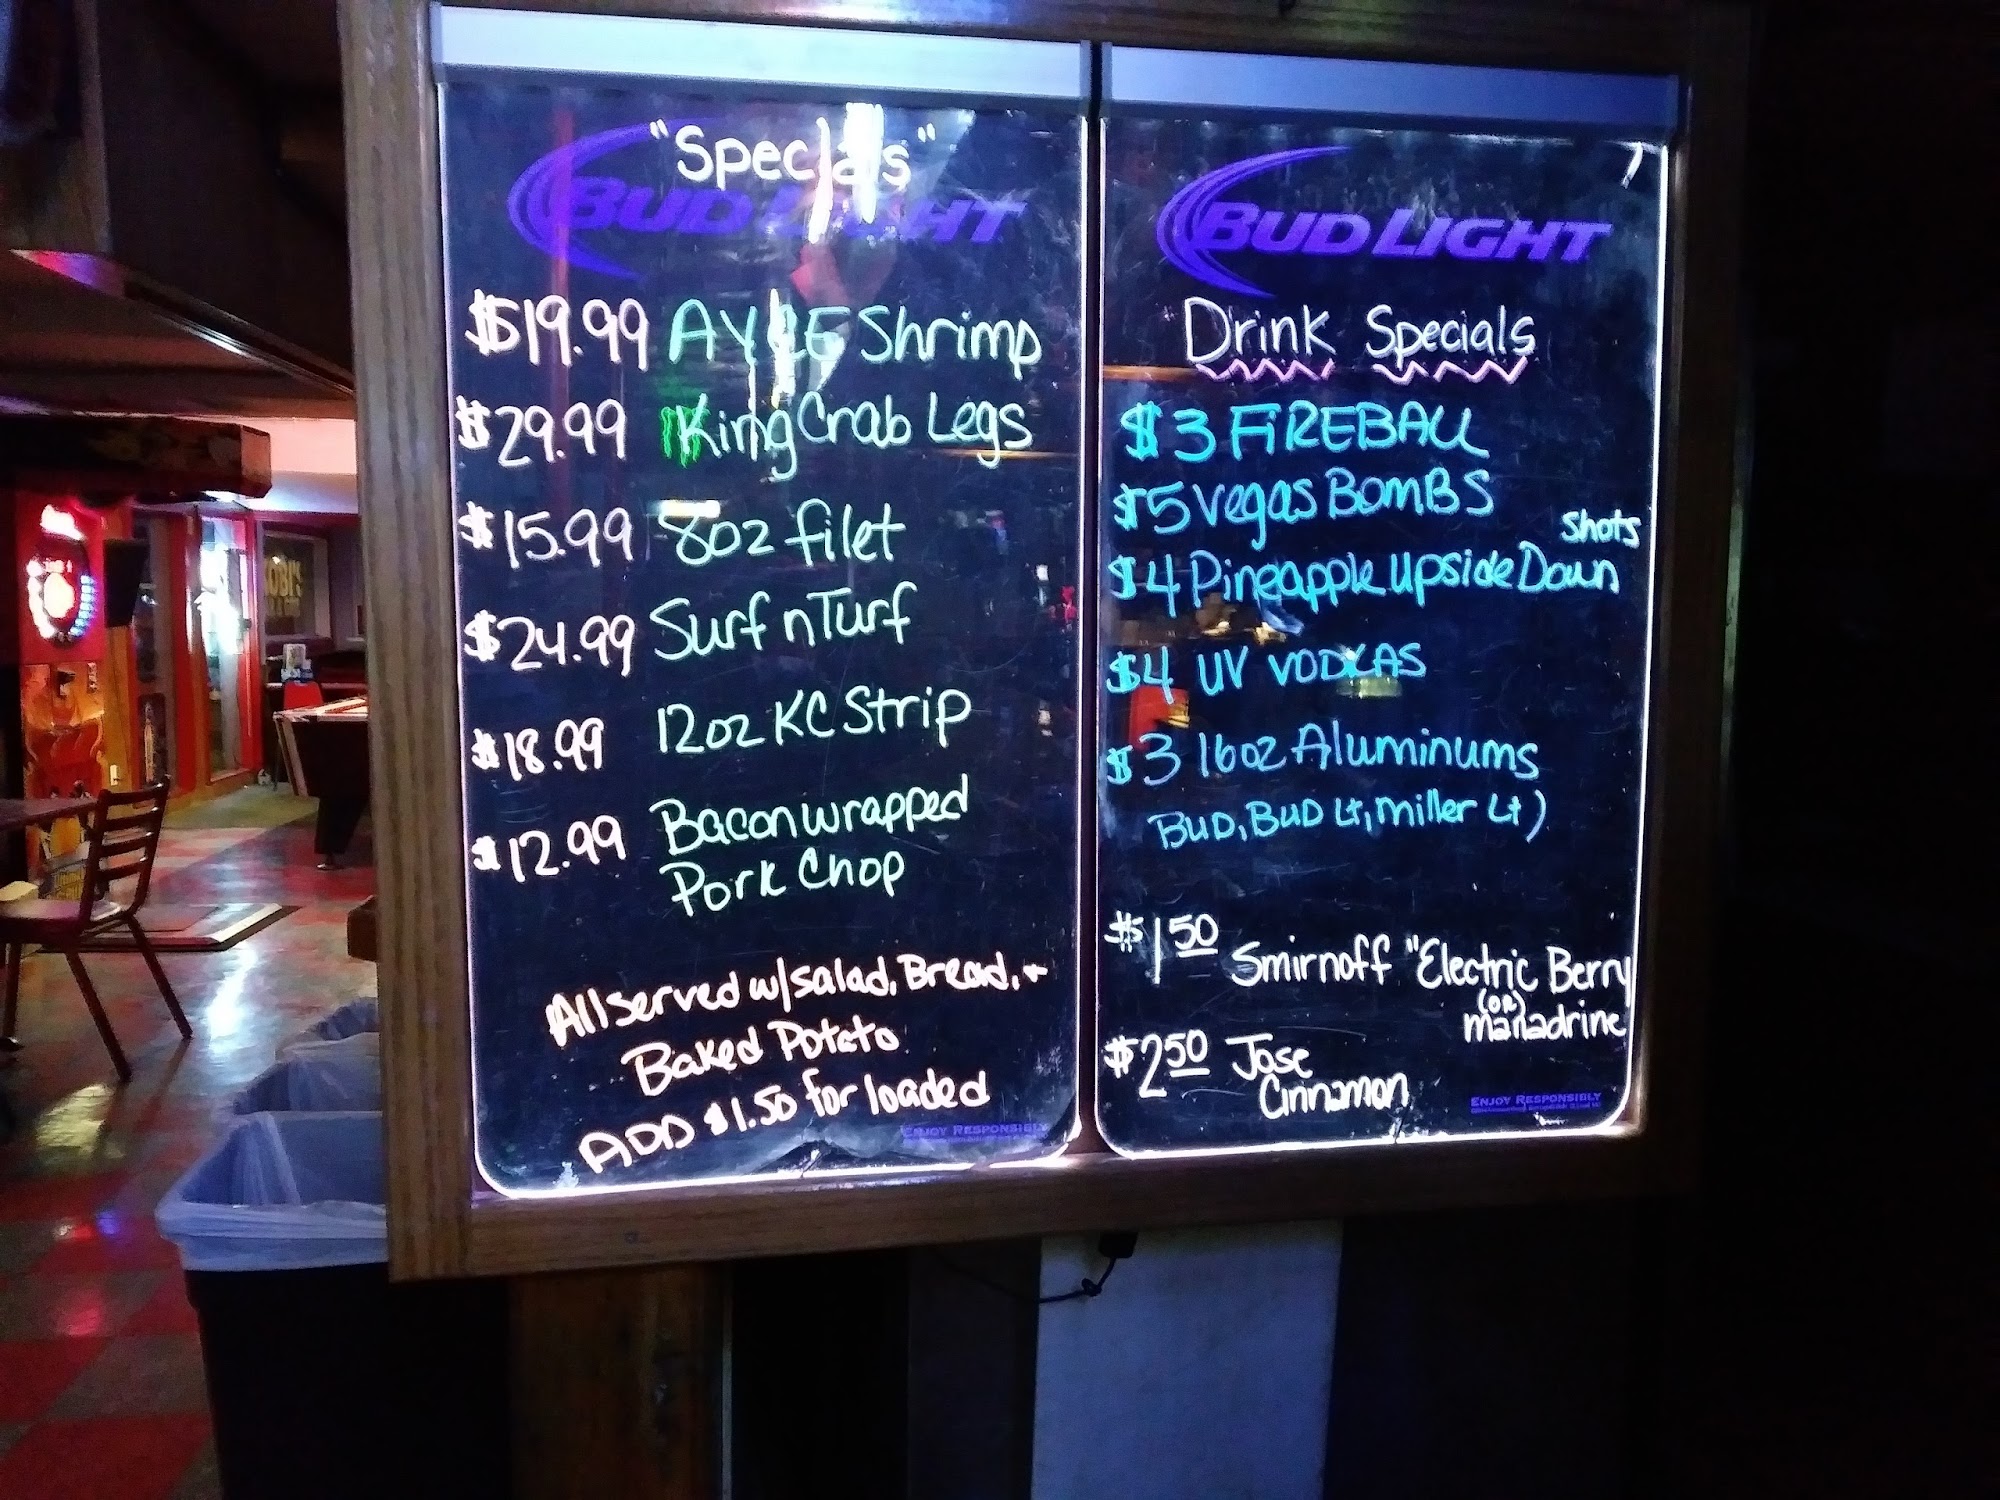 "Specials"
BUD LIGHT
$19.99 AYCE Shrimp
$29.99 King Crab Legs
$15.99 8oz filet
$24.99 Surf n Turf
$18.99 12oz KC Strip
$12.99 Bacon wrapped
Pork Chop
All served w/salad, Bread, +
Baked Potato
ADD $1.50 for loaded
ENJOY RESPONSIBLY
BUD LIGHT
Drink Specials
$3 FiREBALL
$5 Vegas BOMBS
Shots
$4 Pineapple Upside Down
$4 UV VODKAS
$3 16oz Aluminums
BUD, BUD Lt, Miller Lt)
$1.50 Smirnoff "Electric Berry
(OR)
manadrine
$2.50 Jose
Cinnamon
ENJOY RESPONSIBLY